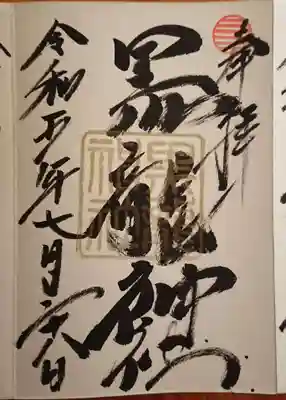 奉拝
黒龍神社
令和五年七月日